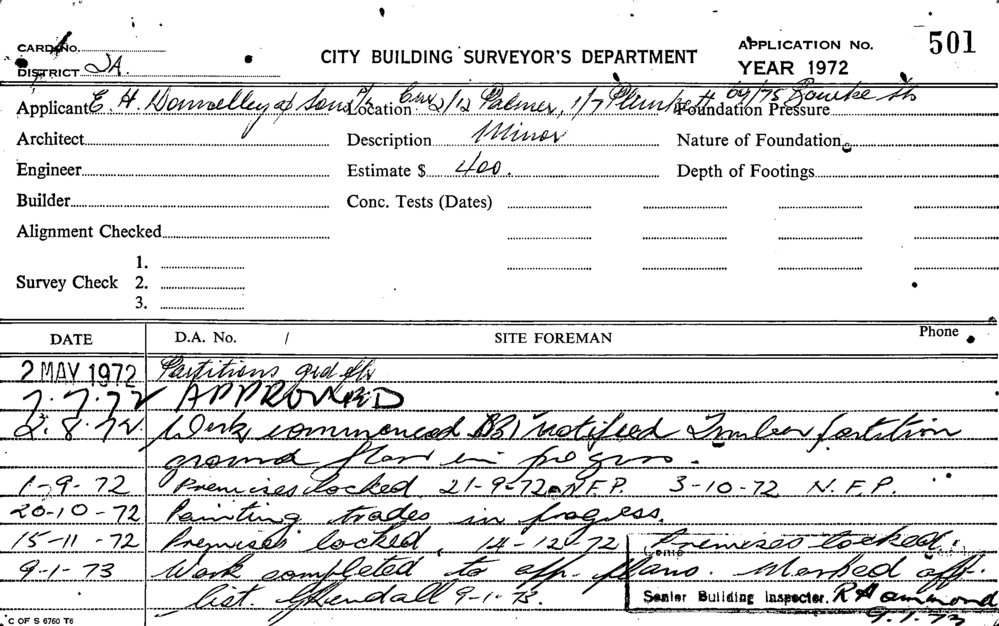 CARD No.
DISTRICT 2A.
CITY BUILDING SURVEYOR'S DEPARTMENT
APPLICATION No. 501
YEAR 1972
Applicant E. H. Donnelley & Sons P/L
Location Cnr 2/12 Palmer, 1/7 Plunkett 69/75 Bourke Sts
Foundation Pressure
Architect
Description Minor
Nature of Foundation
Engineer
Estimate $ 400.
Depth of Footings
Builder
Conc. Tests (Dates)
Alignment Checked
Survey Check 1.
2.
3.
DATE D.A. No. / SITE FOREMAN Phone
2 MAY 1972 Partitions grd flr
7.7.72 APPROVED
2.8.72 Work commenced notified Timber partition
ground floor in progress.
1-9-72 Premises locked 21-9-72 N.F.P. 3-10-72 N.F.P.
20-10-72 Painting trades in progress.
15-11-72 Premises locked, 14-12-72 Premises locked.
9-1-73 Work completed to app. plans. Marked off
list. 9-1-73.
Senior Building Inspector. R Hammond
9.1.73
C OF S 6760 T6